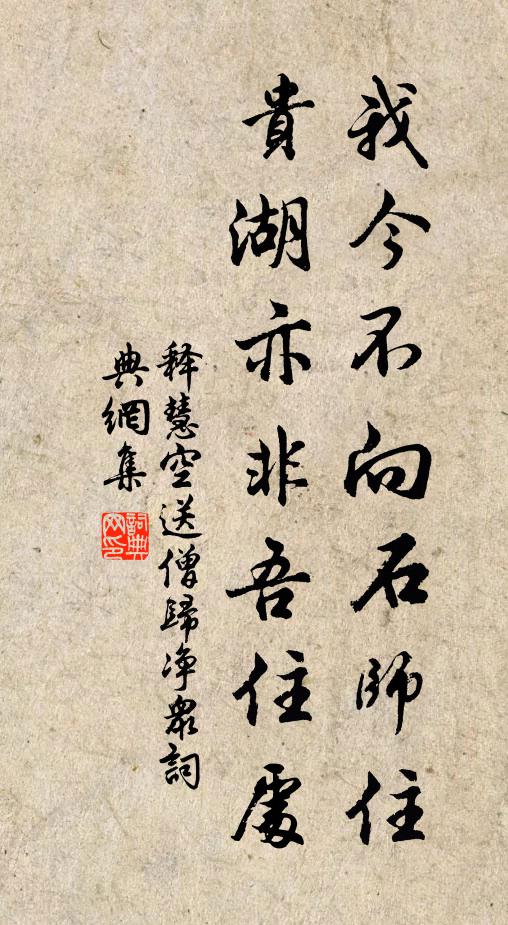 我今不向石師住
貴湖亦非吾住處
释慧空送僧歸净眾詞
典網集
詞典网印